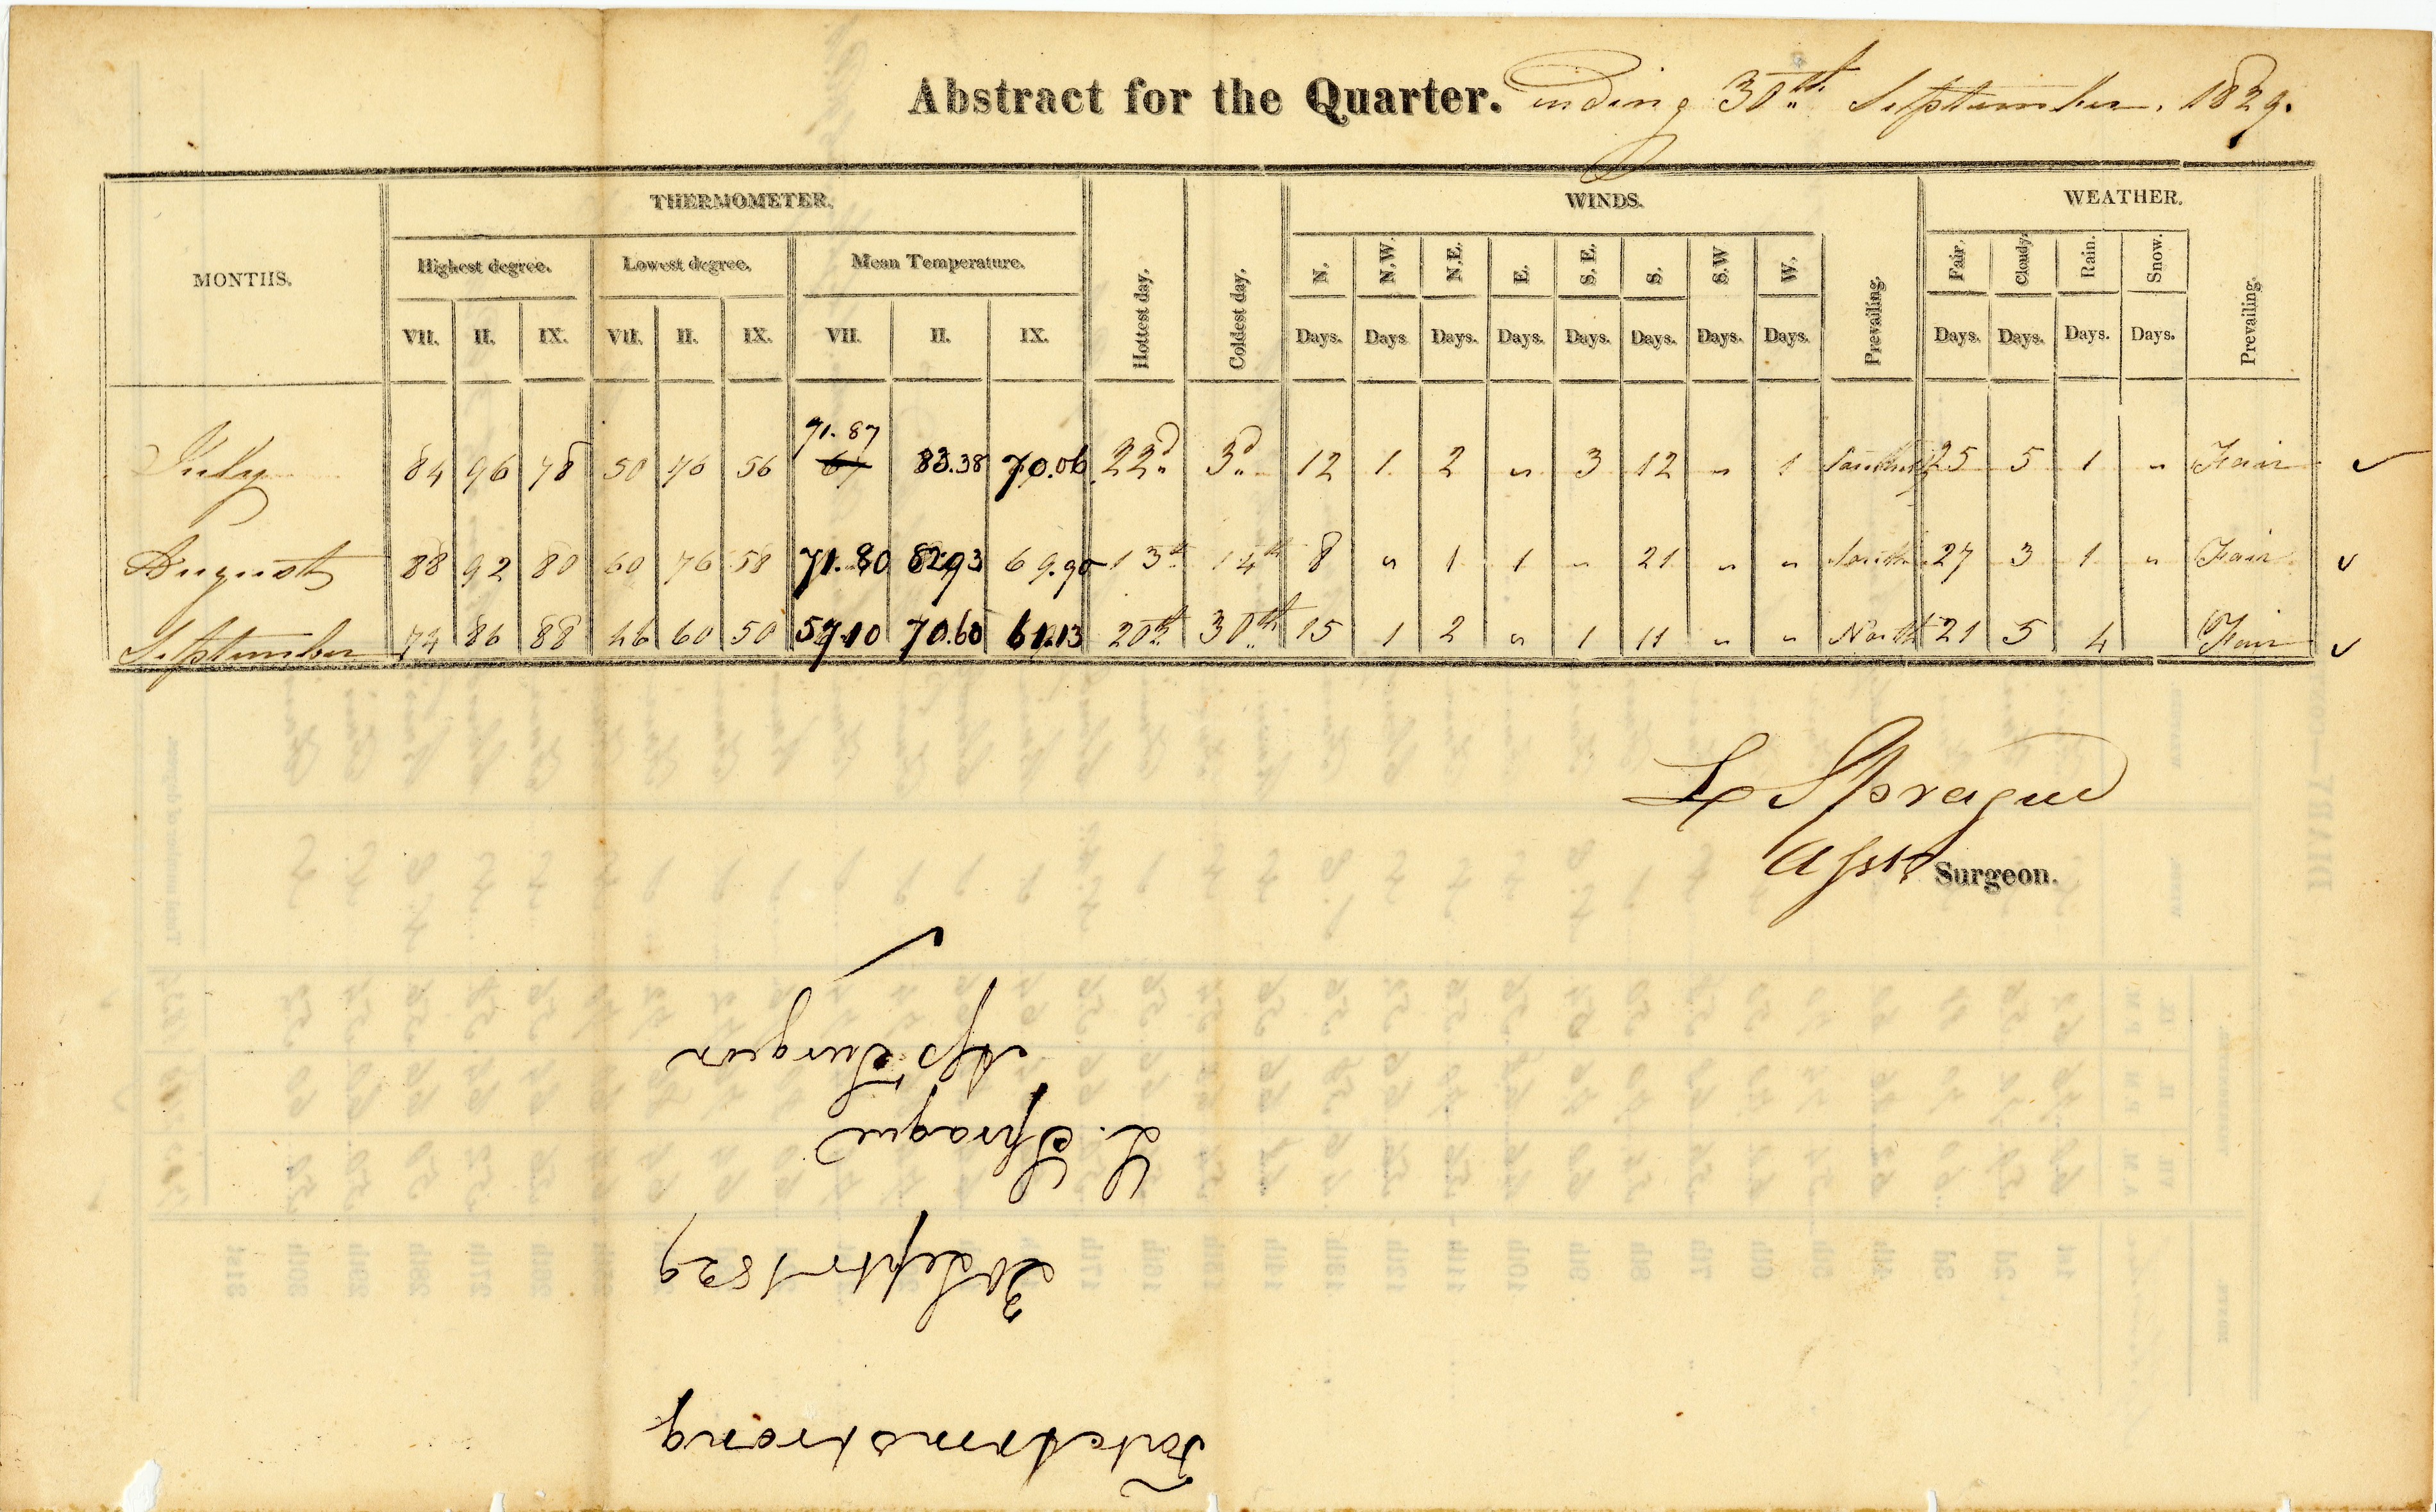 Abstract for the Quarter. Ending 30th September. 1829.
THERMOMETER. WINDS. WEATHER.
MONTHS. Highest degree. Lowest degree. Mean Temperature. Hottest day. Coldest day. N. N.W. N.E. E. S.E. S. S.W W. Prevailing. Fair. Cloudy. Rain. Snow. Prevailing.
VII. II. IX. VII. II. IX. VII. II. IX. Days. Days Days. Days. Days. Days. Days. Days. Days. Days. Days. Days.
71.87
July 84 96 78 50 70 56 67 83.38 70.06 22d 3d 12 1 2 " 3 12 " 1 25 5 1 " Fair ✓
August 88 92 80 60 76 58 71.80 82.93 69.90 13th 14th 8 " 1 1 " 21 " " South 27 3 1 " Fair ✓
September 74 86 88 46 60 50 57.10 70.60 61.13 20th 30th 15 1 2 " 1 11 " " North 21 5 4 Fair ✓
L Sprague
Asst Surgeon.
Fort Armstrong
30 Septr 1829
L. Sprague
Asst Surgeon